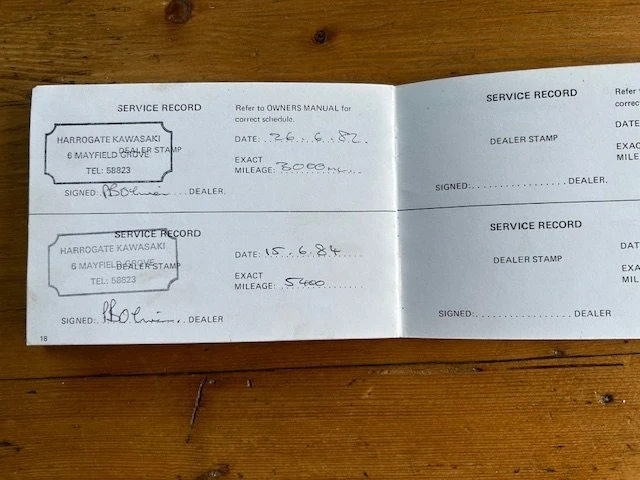 SERVICE RECORD
Refer to OWNERS MANUAL for
correct schedule.
HARROGATE KAWASAKI
6 MAYFIELD GROVE
DEALER STAMP
TEL: 58823
DATE: 26.6.82.
EXACT
MILEAGE: 3000
SIGNED: DEALER.
SERVICE RECORD
HARROGATE KAWASAKI
6 MAYFIELD GROVE
DEALER STAMP
TEL: 58823
DATE: 15.6.84
EXACT
MILEAGE: 5400
SIGNED: DEALER
18
SERVICE RECORD
DEALER STAMP
SIGNED:.................DEALER.
Refer
correc
DATE
EXA
MILE
SERVICE RECORD
DEALER STAMP
SIGNED:.................DEALER
DAT
EXA
MIL